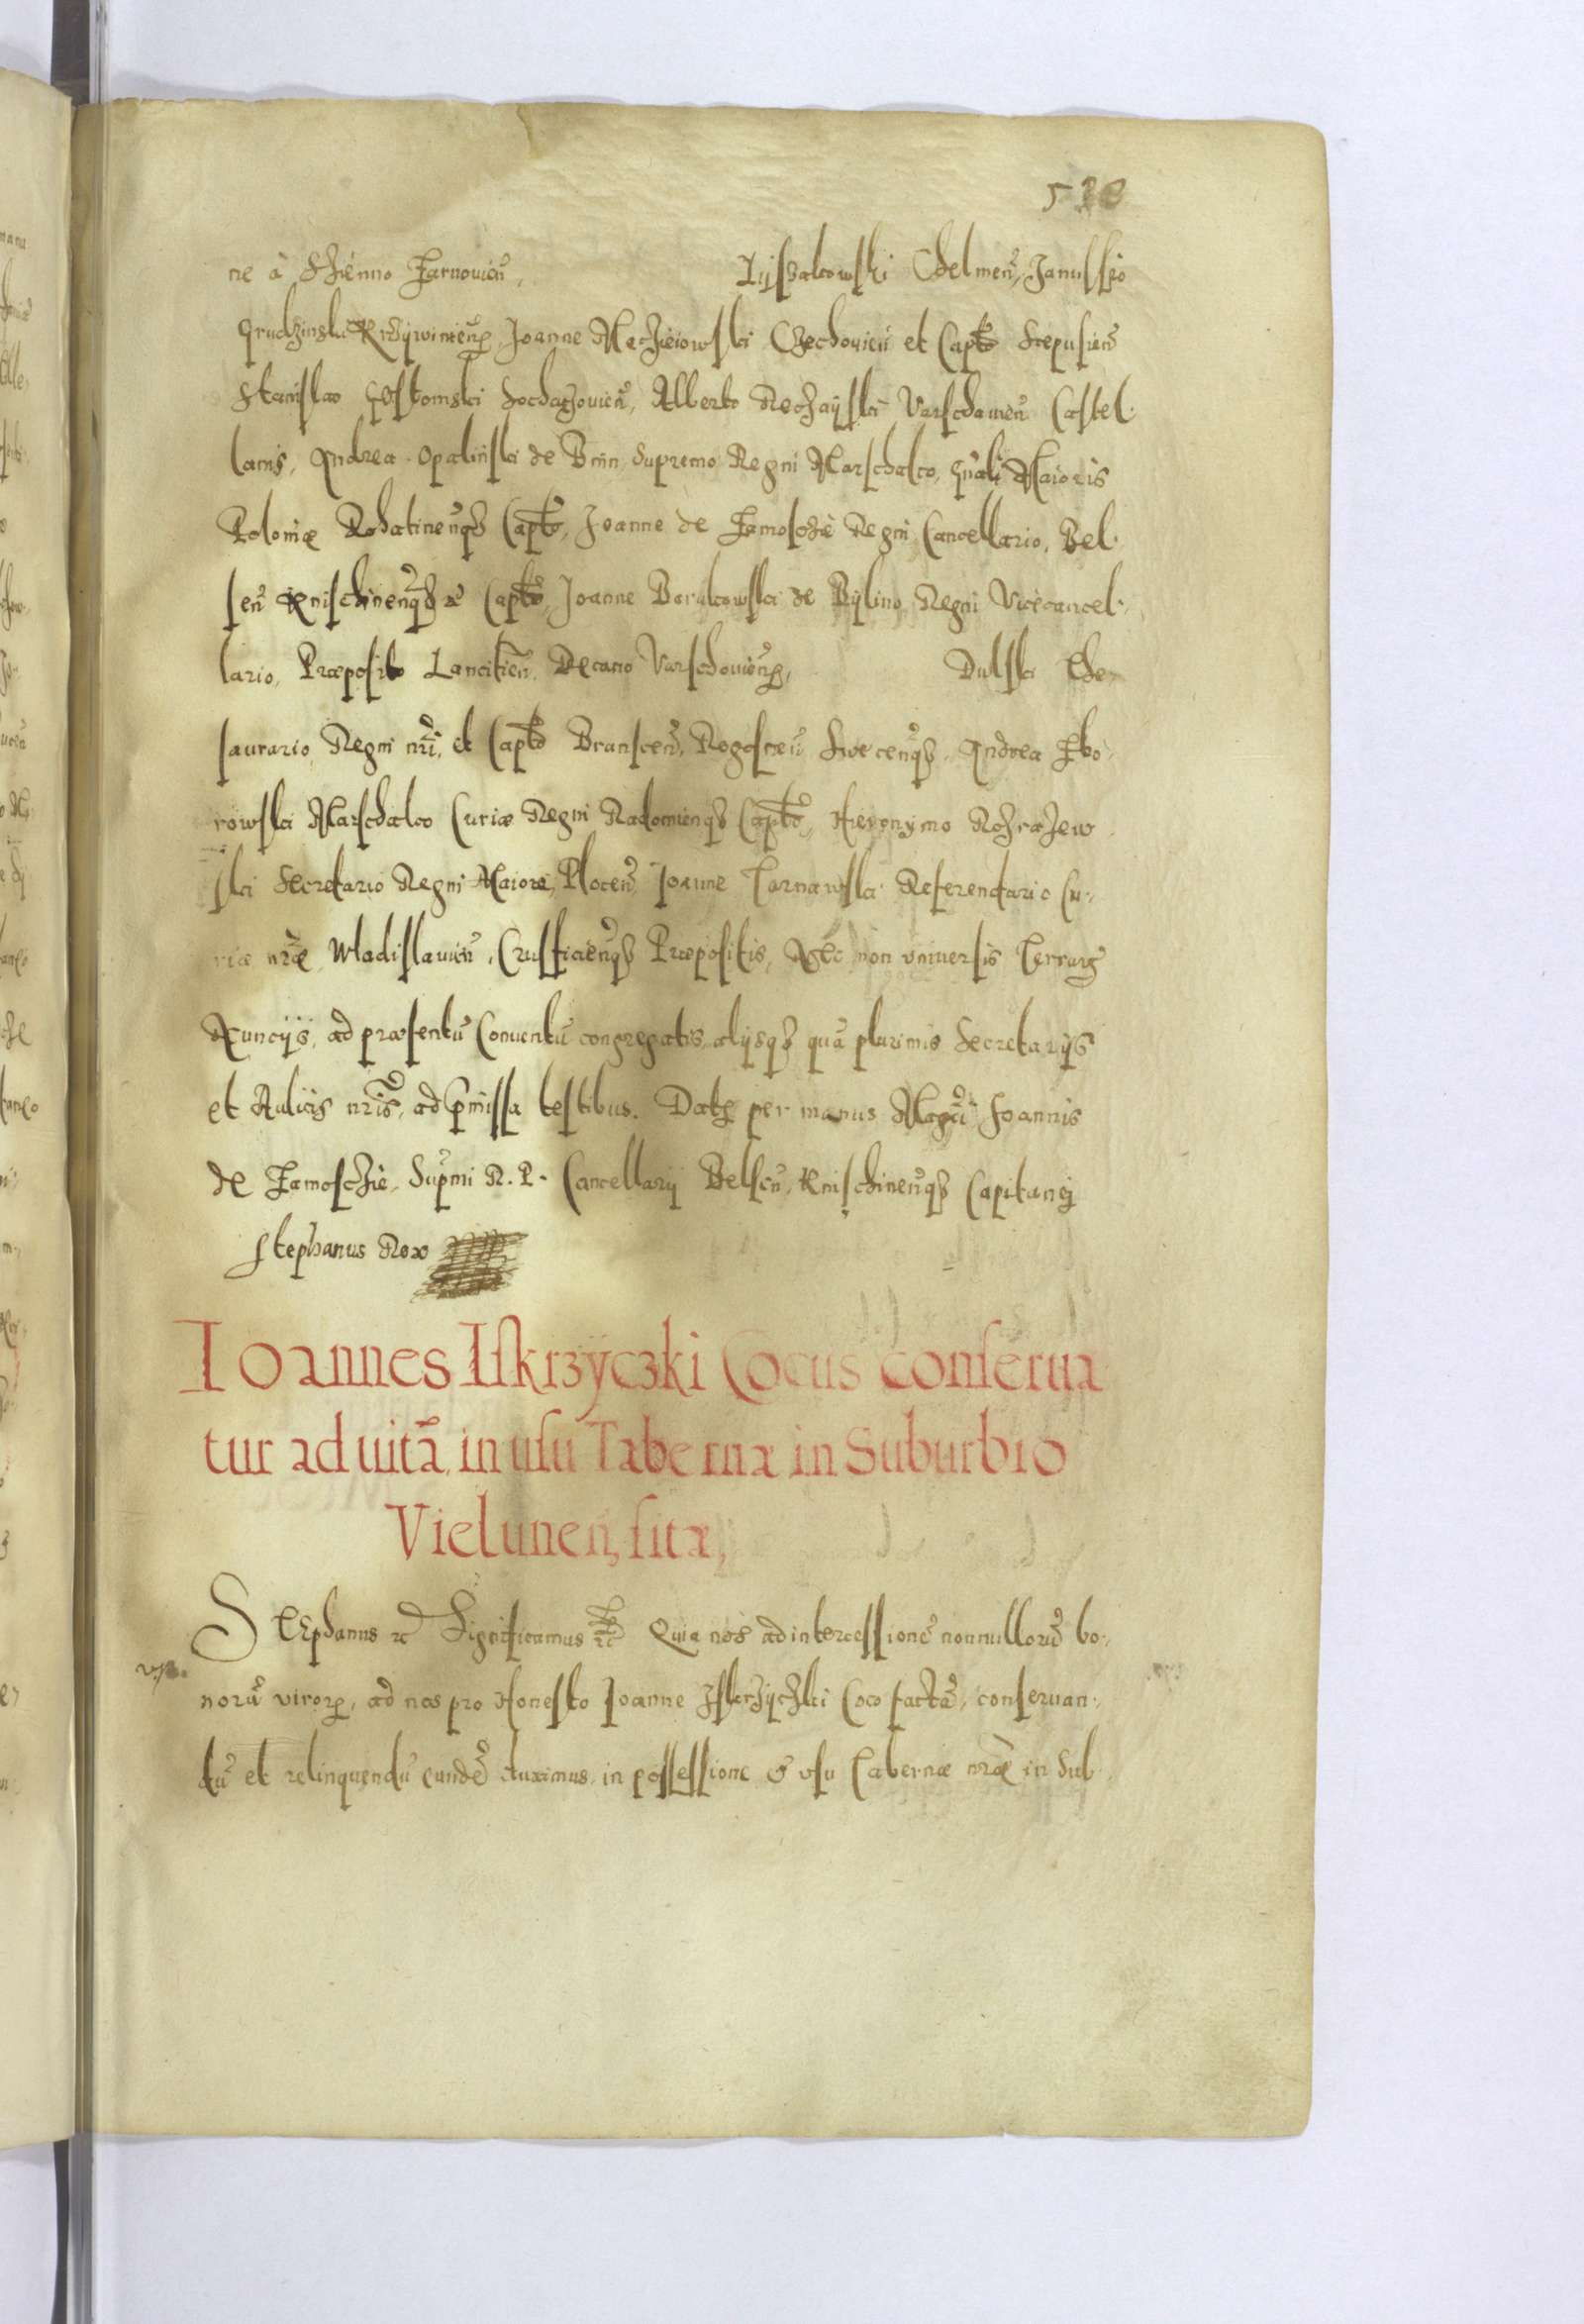 520
ne à Sźienno Żarnovieñ, Lysakowski Chelmeñ, Janussio
Grudzinski Krzywineñ, Joanne Macźieiowski Czechovieñ et Capto Scepusieñ
Stanislao Gostomski Sochaczovieñ, Alberto Reczayski Varschaveñ Castel
lanis, Andrea Opalinski de Bnin Supremo Regni Marschalco, Gñali Maioris
Poloniæ Rohatineñqȝ Capto, Joanne de Zamoschie Regni Cancellario, Bel
señ Knischineñqȝ Capto, Joanne Borukowski de Bylino Regni Vicècancel
lario, Præposito Lancitieñ. Decano Varschovieñ, Dulski The
saurario Regni nri, et Capto Bransceñ, Rogosneñ Sveceñqȝ, Andrea Zbo
rowski Marschalco Curiæ Regni Radomieñqȝ Capto, Hieronymo Rozrażew
ski Secretario Regni Maiore, Ploceñ Joanne Tarnawski Referendario Cu
riæ nræ, Wladislavieñ, Crusficieñqȝ Præpositis, Nec non vniversis Terrarũ
Nuncijs, ad præsentũ Conventũ congregatis, alijsqȝ quã plurimis Secretarijs
et Aulicis nris, ad pmissa testibus. Datũ per manus Magci Joannis
de Zamoschie, Supmi R. P. Cancellarij Belseñ, Knischineñqȝ Capitanej
Stephanus Rex
Ioannes Iſkrzyczki Cocus conſerua
tur ad uitã in uſu Tabernæ in Suburbio
Vieluneñ, ſitæ,
STEphanus &c Significamus &c Quia nos ad intercessionẽ nonnullorũ bo
norũ virorũ, ad nos pro Honesto Joanne Iskrzyczki Coco factã, conservan
dũ et relinquendũ eundẽ duximus in possessione & vsu Tabernæ nræ in Sub